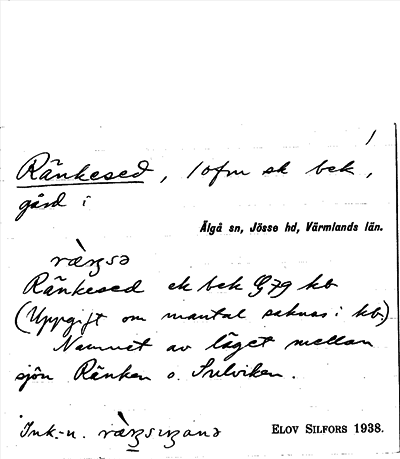 1
Ränkesed, 1 ofm sk bek,
gård i
Älgå sn, Jösse hd, Värmlands län.
Ränkesed ek bek G 79 kb
(Uppgift om mantal saknas i kb.)
Namnet av läget mellan
sjön Ränken o. Sulviken.
Ink.-n.
ELOV SILFORS 1938.